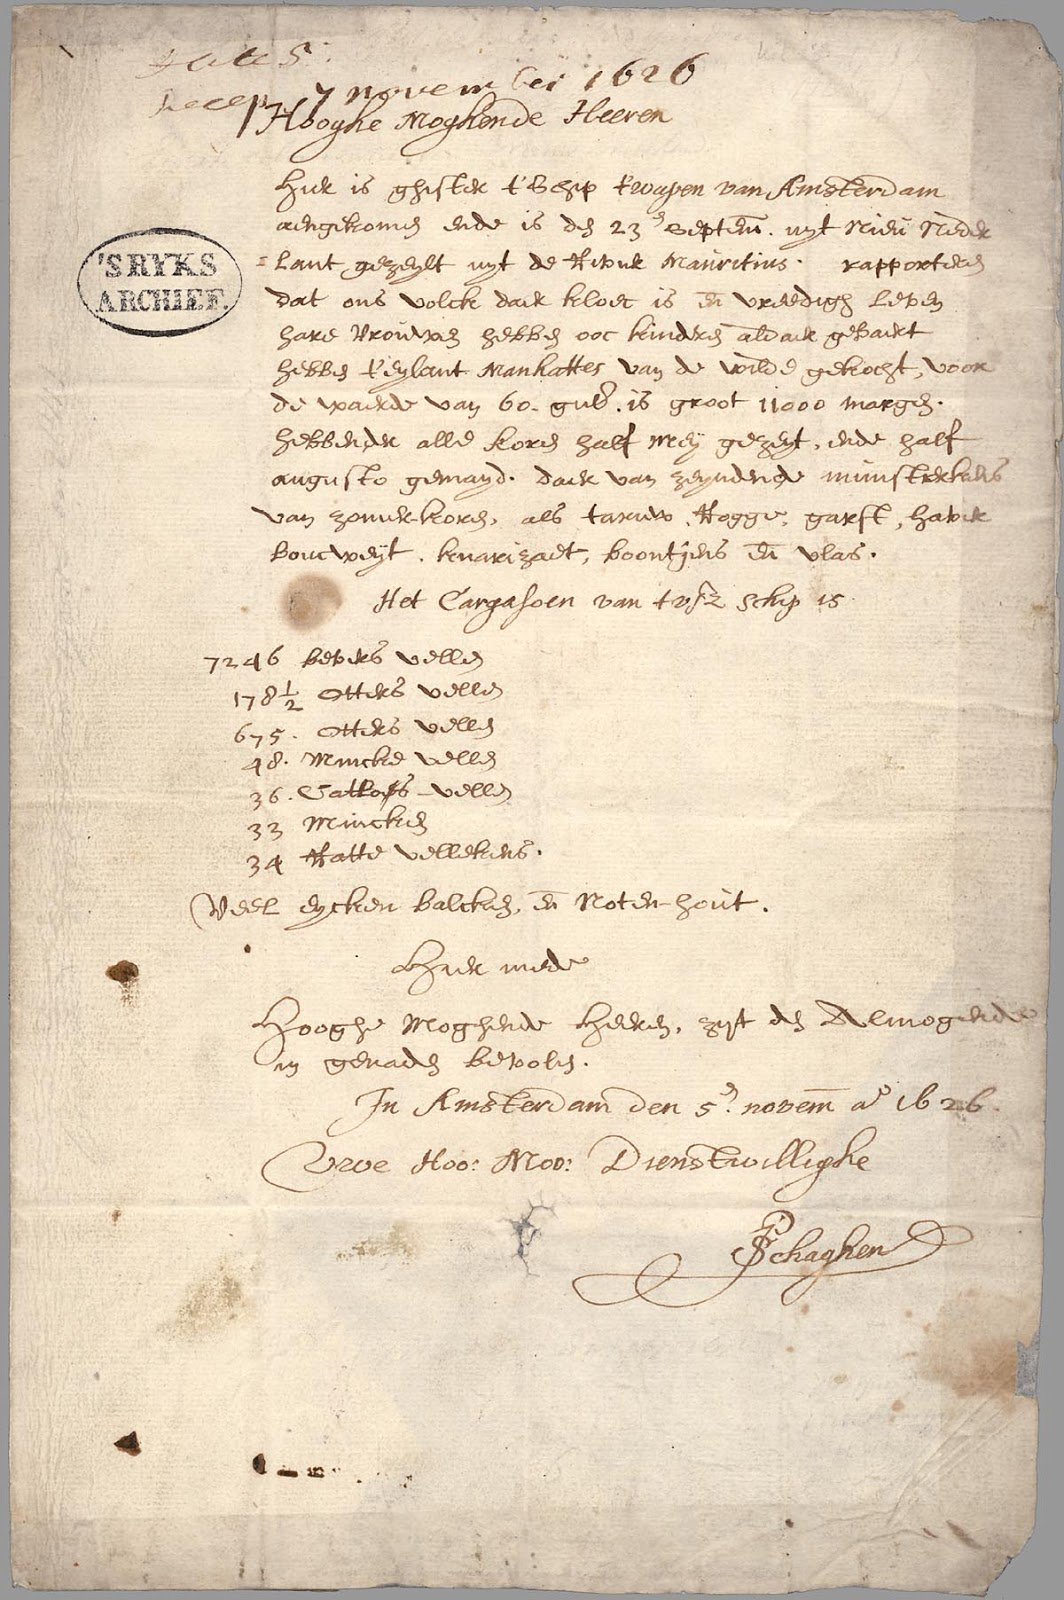 Recep. 7 november 1626
Hooghe Moghende Heeren
'S RYKS
ARCHIEF.
Hier is ghister t'Schip t'wapen van Amsterdam
aengekomen ende is den 23en Septem. uyt Nieu Neder
=Lant gezeylt uyt de Rivier Mauritius. rapporteren
dat ons volck daer kloec is en vreedigh leven
hare Vrouwen hebben ooc kinderen aldaer gebaert
hebben t'eylant Manhattes van de wilde gekocht, voor
de waerde van 60. guld. is groot 11000 margen.
hebbende alle koren half Mey gezeyt, ende half
augusto gemayd. daer van zeyndende munsterkens
van zomerkoren, als taruw, Rogge, garst, haver
boucweyt, knarizaet, boontjens en vlas.
Het Cargasoen van tvsz Schip is
7246 bevers vellen
178 1/2 Otters vellen
675. Otters vellen
48. Mincke vellen
36. Catloes vellen
33 Mincken
34 Ratte vellekens.
Veel eycken balcken, en Noten-hout.
Hier mede
Hooghe Moghende Heeren, zyt den Almogende
in genaden bevolen.
In Amsterdam den 5en. novem ao 1626.
Uwe Hoo: Moo: Dienstwillighe
P Schaghen